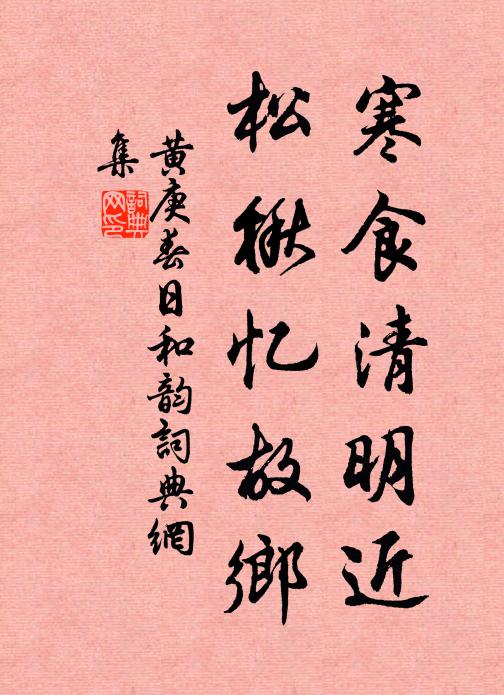 寒食清明近
松楸忆故鄉
黄庚春日和韵詞典網
集
詞典
网印